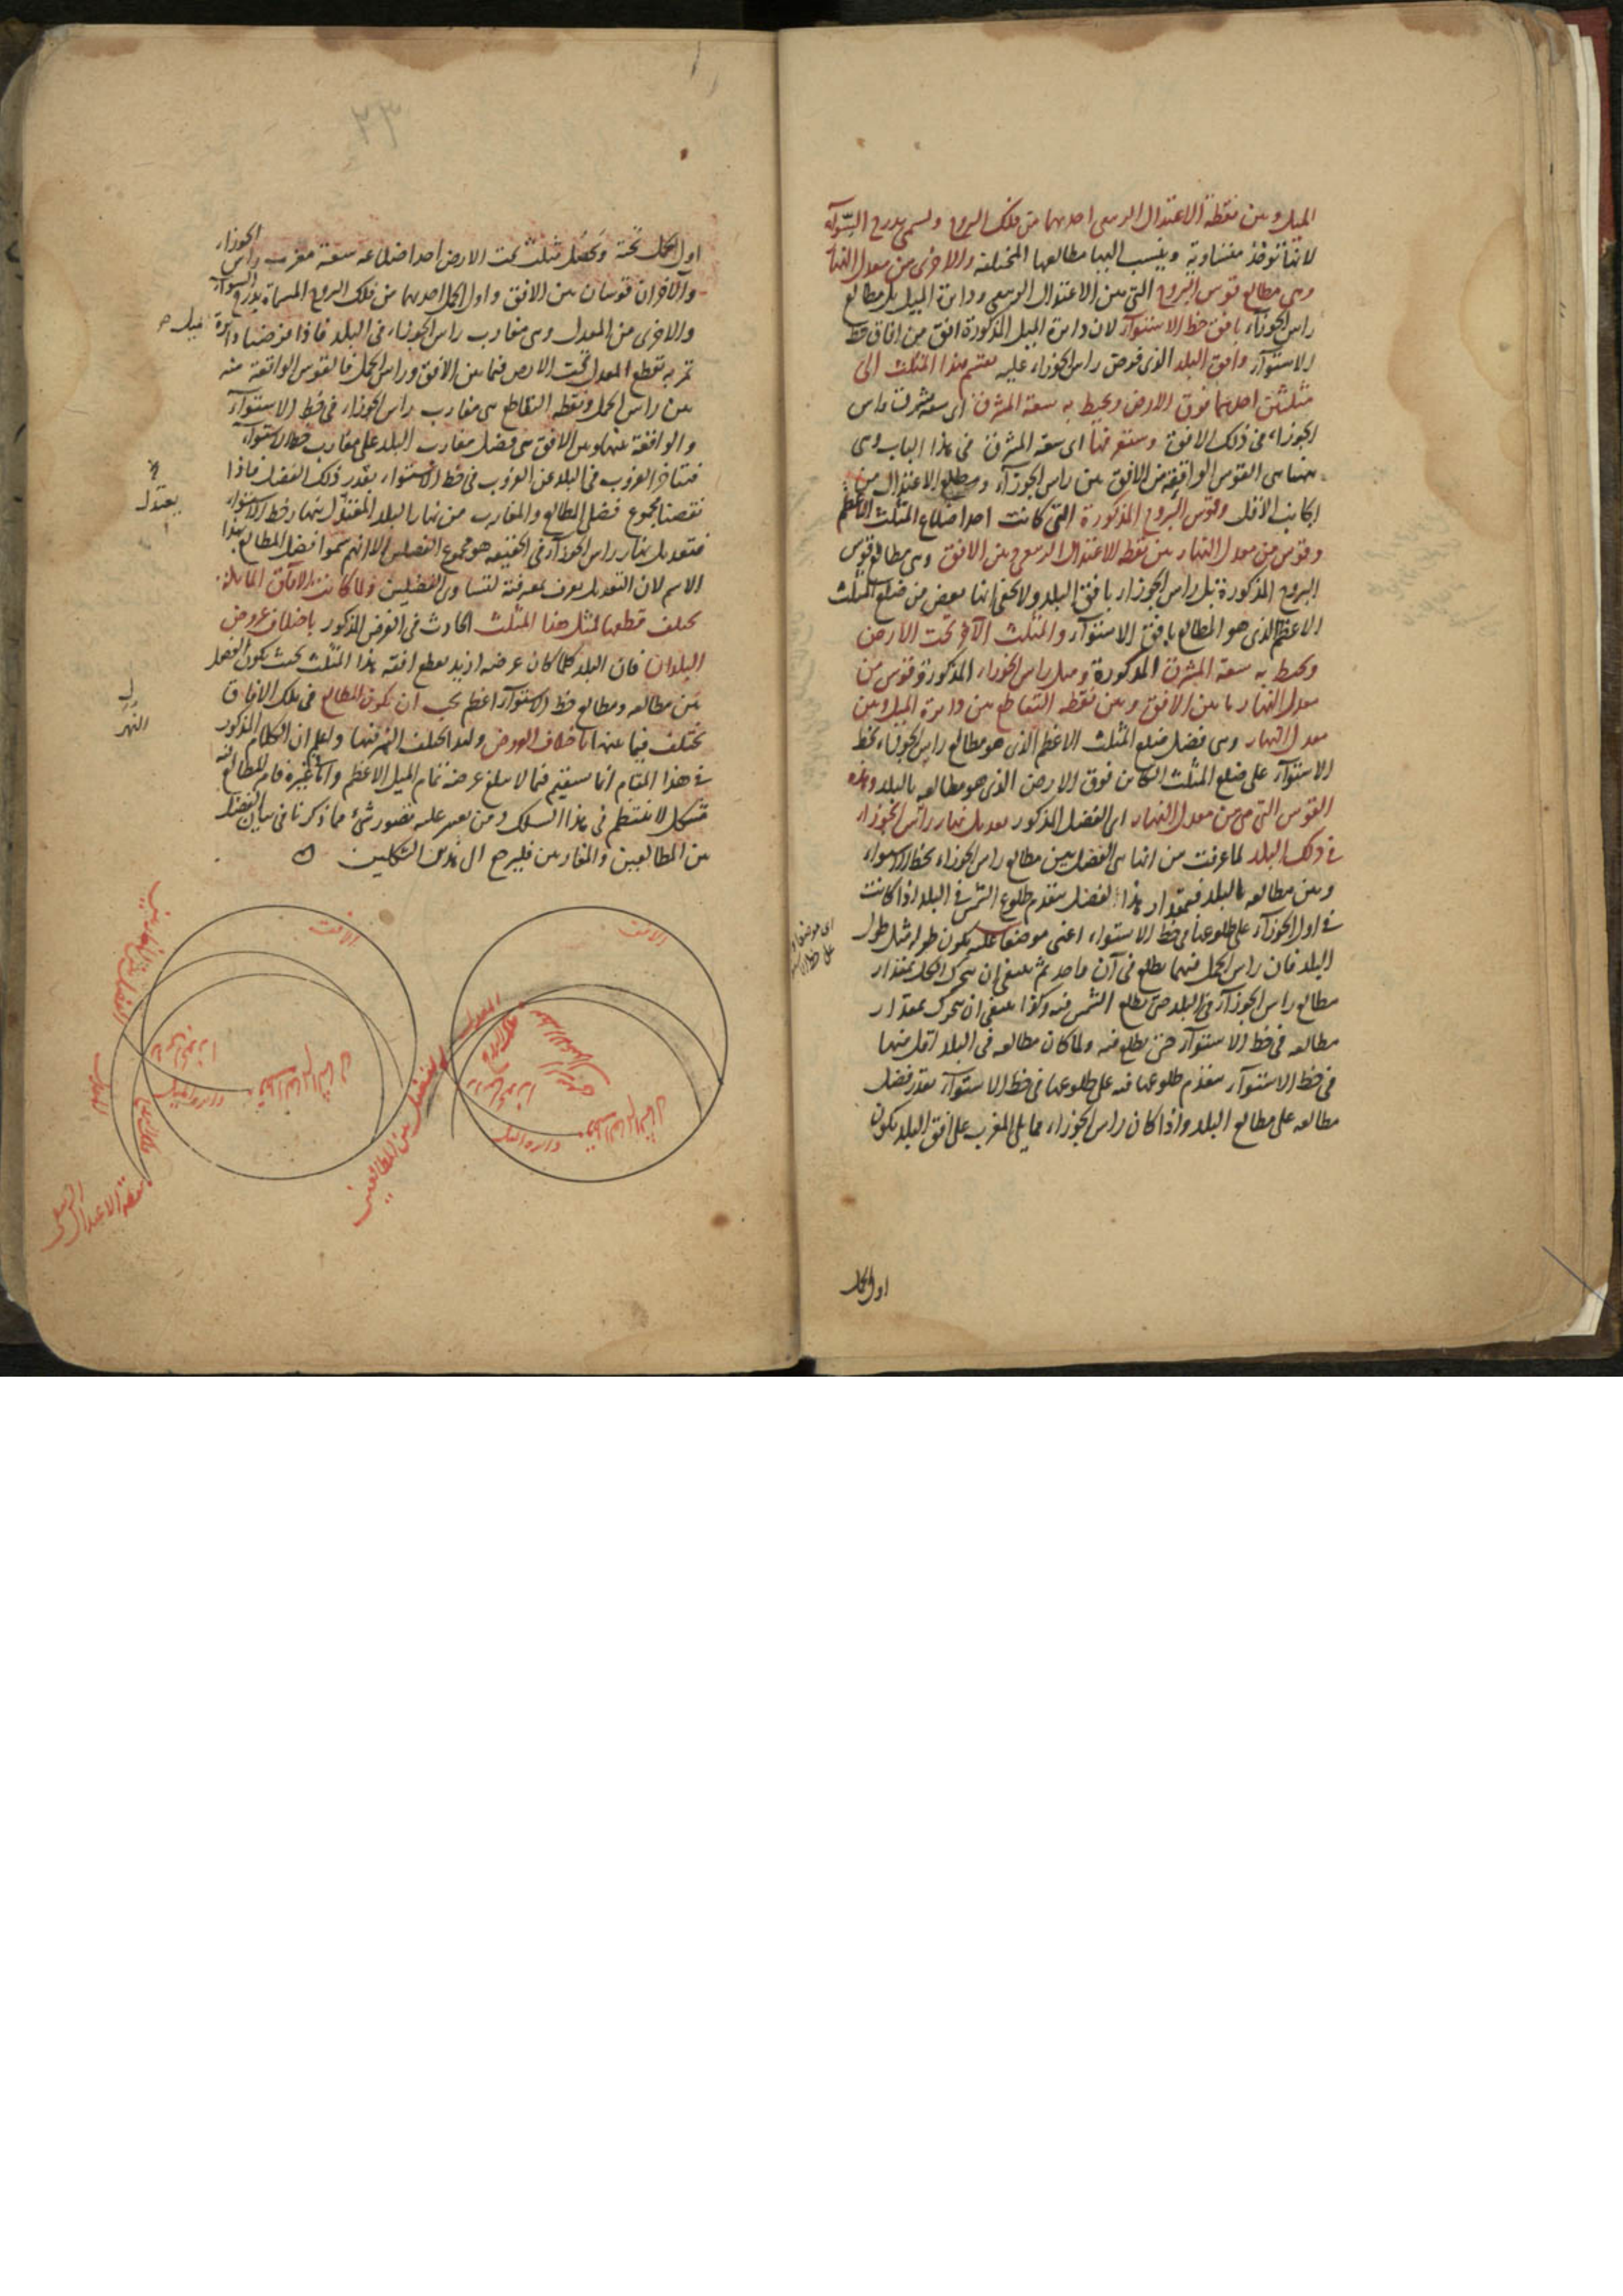 الميل وبين نقطة الاعتدال الربيعى احدىهما من فلك البروج ويسمى بدرج السوآء
لانها تؤخذ متساوية وينسب اليها مطالعها المختلفة والاخرى من معدل النهار
وهى مطالع قوس البروج التى بين الاعتدال الربيعى ودائرة الميل بل مطالع
راس الجوزاء بافق خط الاستوآء لان دائرة الميل المذكورة افق من افاق خط
الاستوآء وافق البلد الذى فرض راس الجوزاء عليه يقسم هذا المثلث الى
مثلثين احدهما فوق الارض ويحيط به سعة المشرق اى سعة مشرق راس
الجوزاء فى ذلك الافق وستعرفها اى سعة المشرق فى هذا الباب وهى
ههنا هى القوس الواقعة من الافق بين راس الجوزآء ومطلع الاعتدال من
الجانب الاقل وقوس البروج المذكورة التى كانت احد اضلاع المثلث الاعظم
وقوس من معدل النهار بين نقطة الاعتدال الربيعى وبين الافق وهى مطالع قوس
البروج المذكورة بل راس الجوزاء بافق البلد ولا يخفى انها بعض من ضلع المثلث
الاعظم الذى هو المطالع بافق الاستوآء والمثلث الآخر تحت الارض
ويحيط به سعة المشرق المذكورة وميل راس الجوزاء المذكورة وقوس من
معدل النهار ما بين الافق وبين نقطة التقاطع بين دائرة الميل وبين
معدل النهار وهى فضل ضلع المثلث الاعظم الذى هو مطالع راس الجوزاء بخط
الاستوآء على ضلع المثلث الكائن فوق الارض الذى هو مطالعه بالبلد وهذه
القوس التى هى من معدل النهار اى الفضل المذكور تعديل نهار راس الجوزاء
فى ذلك البلد لما عرفت من انها هى الفضل بين مطالع راس الجوزاء بخط الاستواء
وبين مطالعه بالبلد فبمقدار هذا الفضل يتقدم طلوع الشمس فى البلد اذا كانت
فى اول الجوزآء على طلوعها فى خط الاستواء اعنى موضعا عليه يكون طوله مثل طول
البلد فان راس الحمل فيهما يطلع فى آن واحد ثم ينبغى ان يتحرك الكل بمقدار
مطالع راس الجوزآء فى البلد حتى يطلع الشمس فيه وكذا ينبغى ان يتحرك بمقدار
مطالعه فى خط الاستوآء حتى يطلع فيه ولما كان مطالعه فى البلد اقل منها
فى خط الاستوآء يتقدم طلوعها فيه على طلوعها فى خط الاستوآء بقدر فضل
مطالعه على مطالع البلد واذا كان راس الجوزاء مما يلى المغرب على افق البلد يكون
اول الحمل
اول الحمل تحته ويحصل مثلث تحت الارض احد اضلاعه سعة مغرب راس الجوزاء
والآخران قوسان بين الافق واول الحمل احدىهما من فلك البروج المسماة بدرج السوآء
والاخرى من المعدل وهى مغارب راس الجوزاء فى البلد فاذا فرضنا دائرة ميل
تمر به تقطع المعدل تحت الارض فيما بين الافق وراس الحمل فالقوس الواقعة منه
بين راس الحمل ونقطة التقاطع هى مغارب راس الجوزاء فى خط الاستوآء
والواقعة بينها وبين الافق هى فضل مغارب البلد على مغارب خط الاستوآء
فيتاخر الغروب فى البلد عن الغروب فى خط الاستواء بقدر ذلك الفضل فاذا
نقصنا مجموع فضل المطالع والمغارب من نهار البلد
فتعديل نهار راس الجوزآء فى الحقيقة هو مجموع الفضلين الا انهم سموا فضل المطالع بهذا
الاسم لان التعديل يعرف بمعرفته لتساوى الفضلين ولما كانت الآفاق المائلة
يختلف قطعها لمثل هذا المثلث الحادث فى الفرض المذكور باختلاف عروض
البلدان فان البلد كلما كان عرضه ازيد يقطع افقه هذا المثلث بحيث يكون الفضل
بين مطالعه ومطالع خط الاستوآء اعظم يجب ان يكون المطالع فى تلك الافاق
تختلف فيما بينها باختلاف العروض وليعلم ان الكلام المذكور
فى هذا المقام انما يستقيم فيما لا يبلغ عرضه تمام الميل الاعظم واما غيره فامر المطالع فيه
مشكل لا ينتظم فى هذا السلك ومن يعسر عليه تصور شئ مما ذكرنا فى بيان الفضل
بين المطالعين والمغاربين فليرجع الى هذين الشكلين
الافق
الافق
الفضل بين المطالعين
الفضل بين المغاربين
دائرة الميل
دائرة الميل
نقطة الاعتدال الربيعى